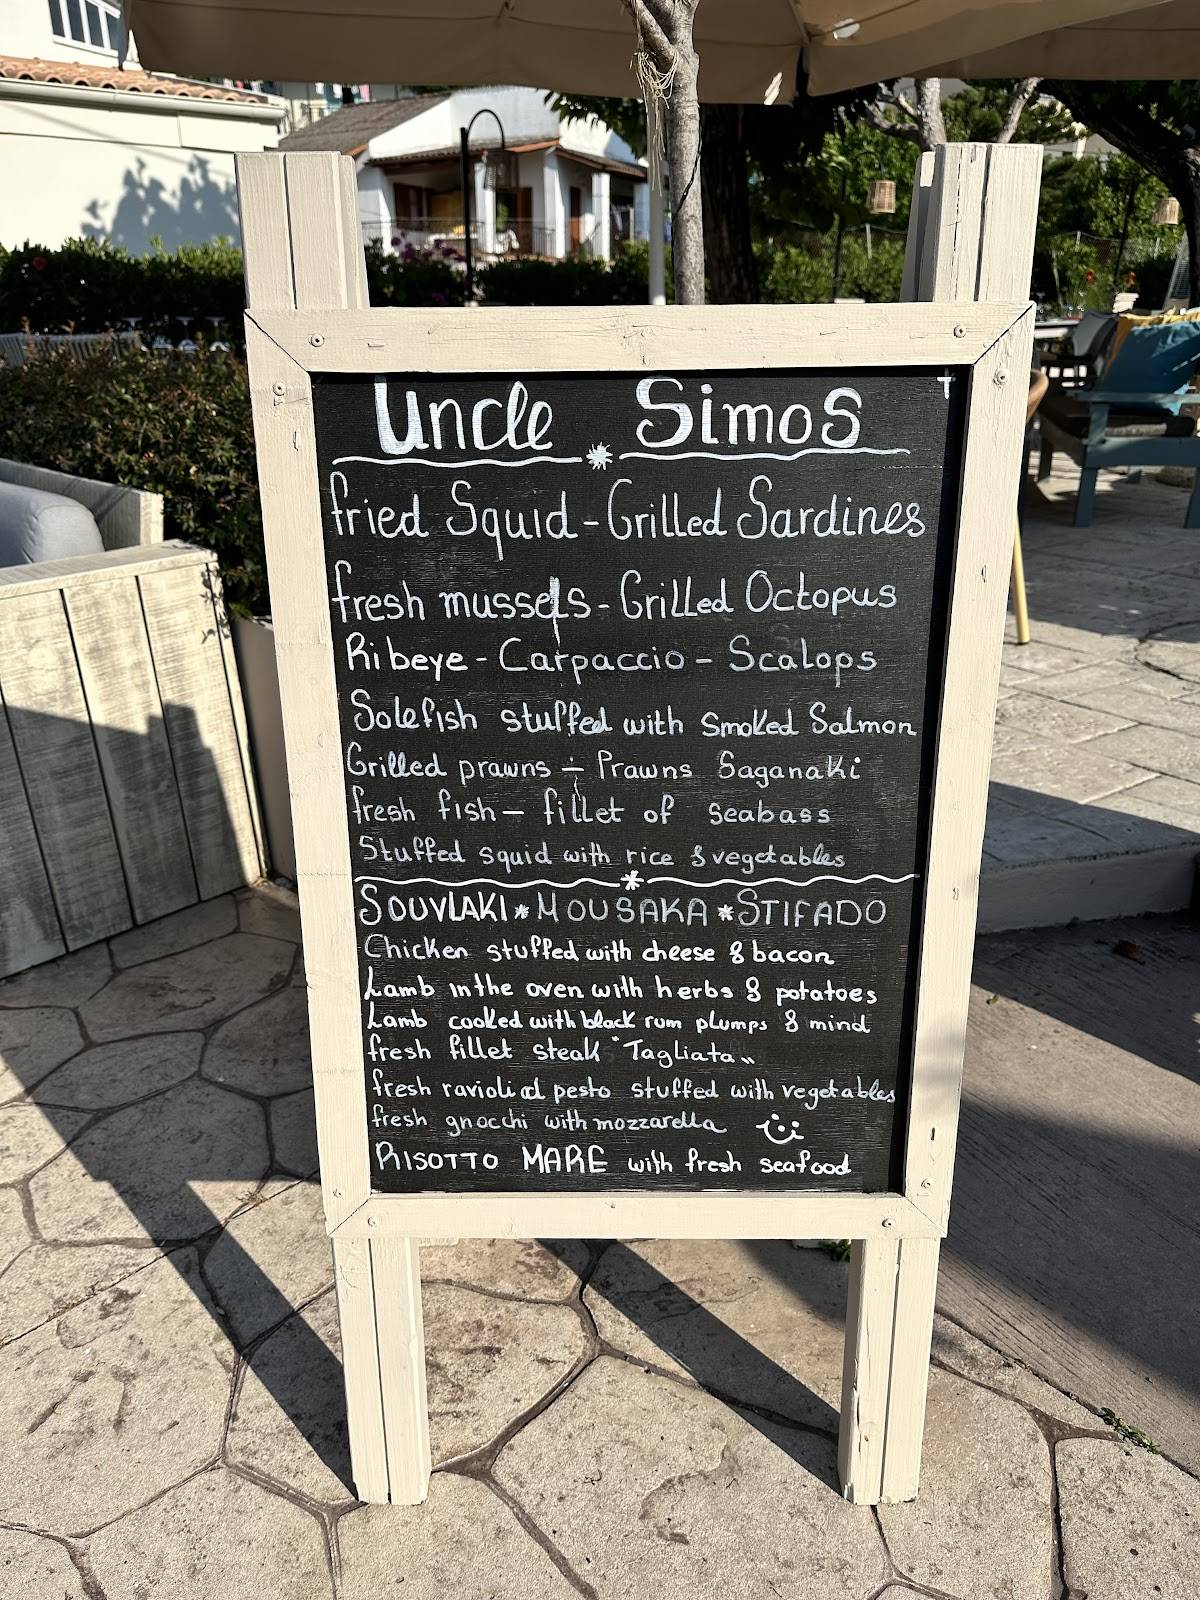 Uncle Simos
fried Squid - Grilled Sardines
fresh mussels - Grilled Octopus
Ribeye - Carpaccio - Scalops
Solefish stuffed with smoked Salmon
Grilled prawns - Prawns Saganaki
fresh fish - fillet of seabass
Stuffed squid with rice & vegetables
SOUVLAKI * MOUSAKA * STIFADO
Chicken stuffed with cheese & bacon
Lamb in the oven with herbs & potatoes
Lamb cooked with black rum plumps & mind
fresh fillet steak "Tagliata"
fresh ravioli al pesto stuffed with vegetables
fresh gnocchi with mozzarella
RISOTTO MARE with fresh seafood